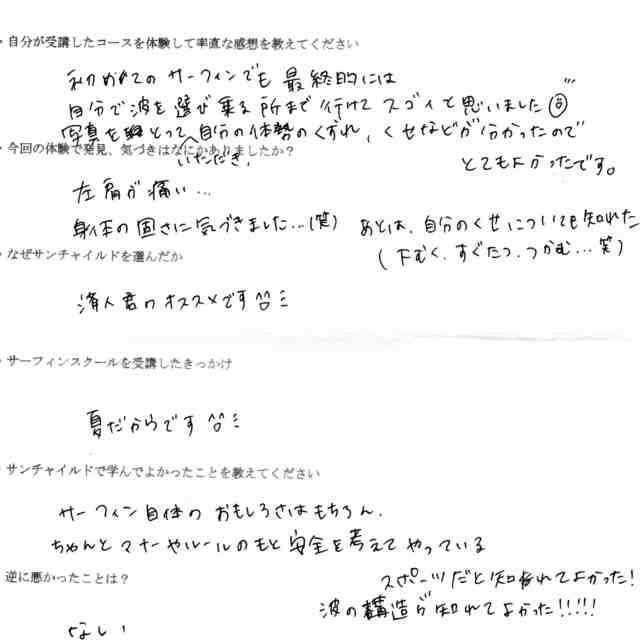 ・自分が受講したコースを体験して率直な感想を教えてください
初めてのサーフィンでも最終的には
自分で波を選び乗る所まで行けてスゴイと思いました
写真をとって自分の体勢のくずれ、くせなどが分かったので
いただき、
とてもよかったです。
・今回の体験で発見、気づきはなにかありましたか？
左肩が痛い…
身体の固さに気づきました…(笑) あとは、自分のくせについても知れた
(下むく、すぐたつ、つかむ…笑)
・なぜサンチャイルドを選んだか
済人君のオススメです^^
・サーフィンスクールを受講したきっかけ
夏だからです^^
・サンチャイルドで学んでよかったことを教えてください
サーフィン自体のおもしろさはもちろん、
ちゃんとマナーやルールのもと安全を考えてやっている
スポーツだと知れてよかった!
波の構造が知れてよかった!!!!!
逆に悪かったことは？
なしい